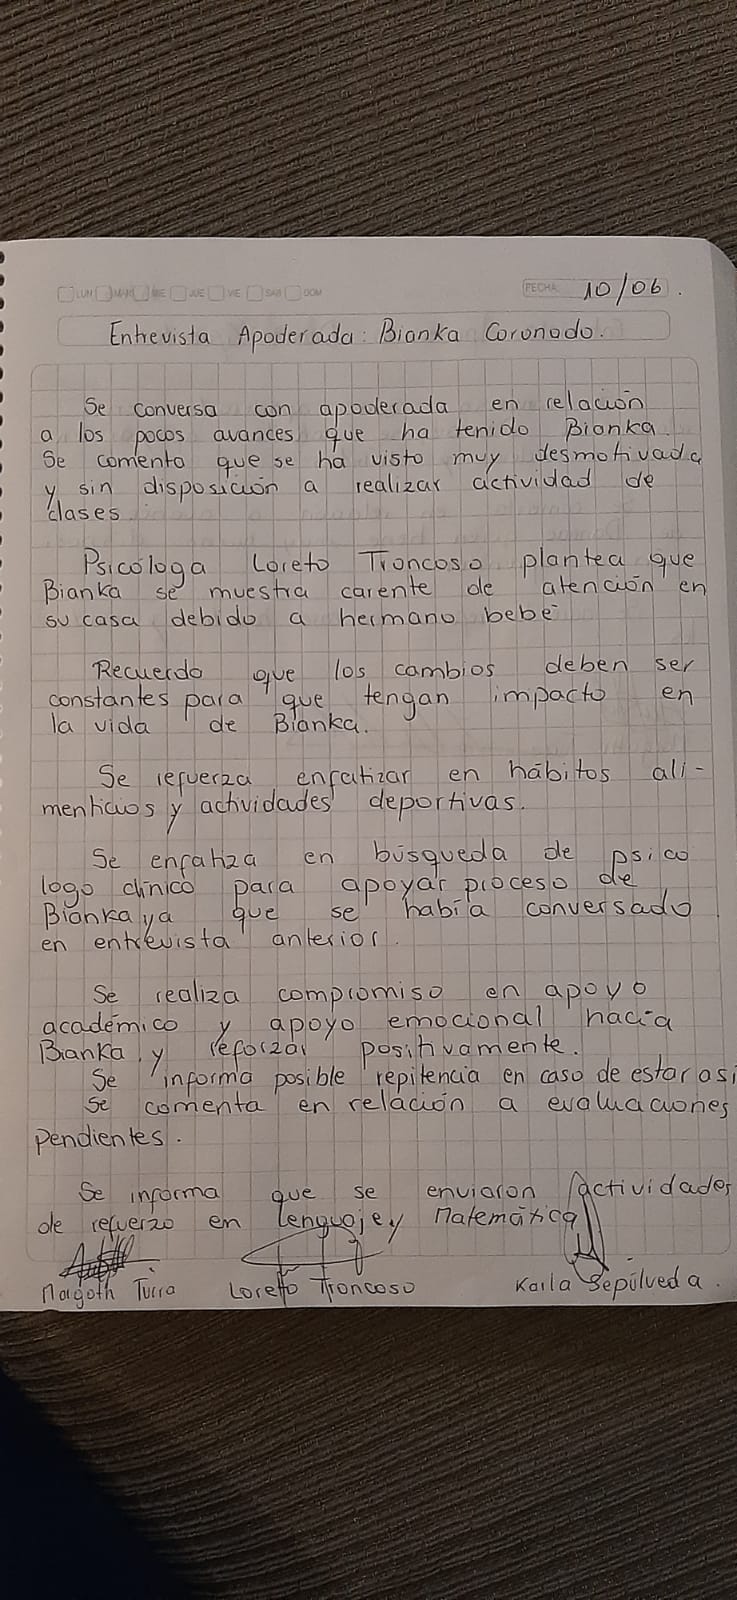 LUN MAR MIE JUE VIE SAB DOM FECHA: 10/06.
Entrevista Apoderada: Bianka Coronado.
Se conversa con apoderada en relación
a los pocos avances que ha tenido Bianka.
Se comenta que se ha visto muy desmotivada
y sin disposición a realizar actividad de
clases
Psicóloga Loreto Troncoso plantea que
Bianka se muestra carente de atención en
su casa debido a hermano bebe
Recuerdo que los cambios deben ser
constantes para que tengan impacto en
la vida de Bianka.
Se refuerza enfatizar en hábitos ali-
menticios y actividades deportivas.
Se enfatiza en búsqueda de psico
logo clínico para apoyar proceso de
Bianka ya que se había conversado
en entrevista anterior.
Se realiza compromiso en apoyo
académico y apoyo emocional hacia
Bianka, y reforzar positivamente.
Se informa posible repitencia en caso de estar asi
Se comenta en relación a evaluaciones
pendientes.
Se informa que se enviaron actividades
de refuerzo en Lenguaje y Matemática
Margoth Turra Loreto Troncoso Karla Sepúlveda.